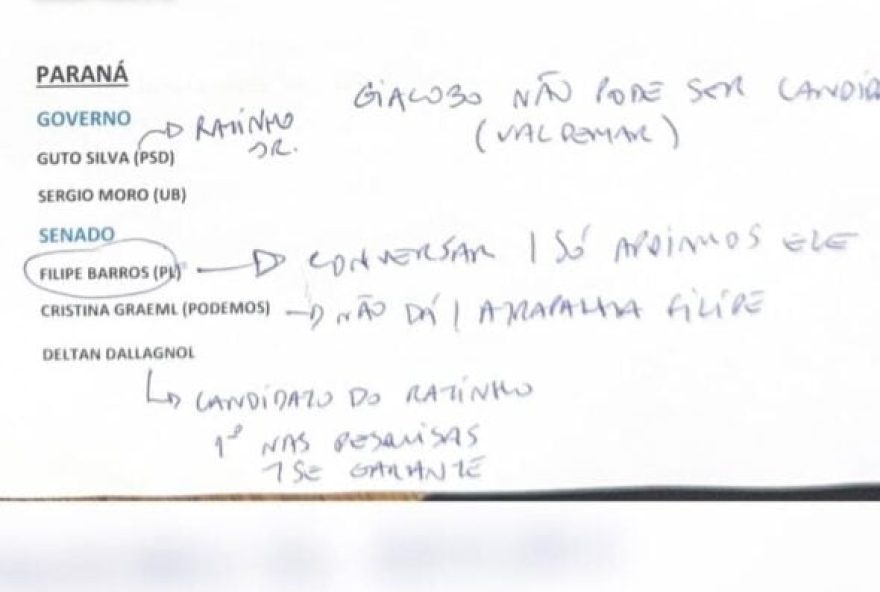 PARANÁ
GIACOBO NÃO PODE SER CANDID
(VALDEMAR)
GOVERNO
RATINHO
JR.
GUTO SILVA (PSD)
SERGIO MORO (UB)
SENADO
FILIPE BARROS (PL)
CONVERSAR / SÓ APOIAMOS ELE
CRISTINA GRAEML (PODEMOS)
NÃO DÁ / ATRAPALHA FILIPE
DELTAN DALLAGNOL
CANDIDATO DO RATINHO
1º NAS PESQUISAS
SE GARANTE